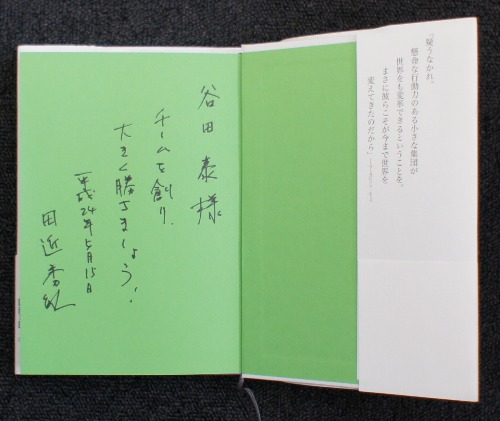 「疑うなかれ。
懸命な行動力のある小さな集団が
世界をも変革できるということを。
まさに彼らこそが今まで世界を
変えてきたのだから」
谷田泰様
チームを創り、
大きく勝ちましょう!
平成24年5月15日
田近秀